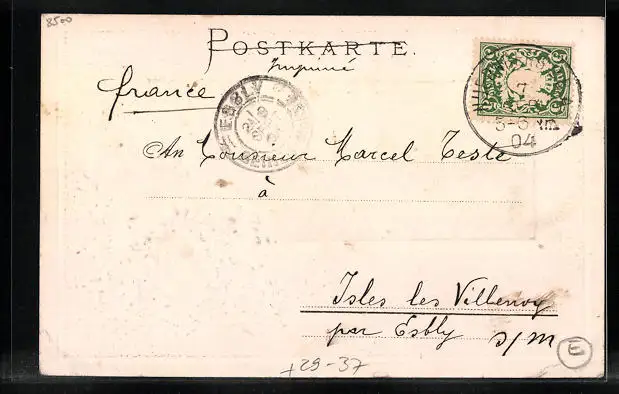 8500
POSTKARTE.
Imprimé
france
ESBLY
7
5-6 NM
04
An Monsieur Marcel Teste
à
Isles les Villenoy
par Esbly s/m
+29-37
E